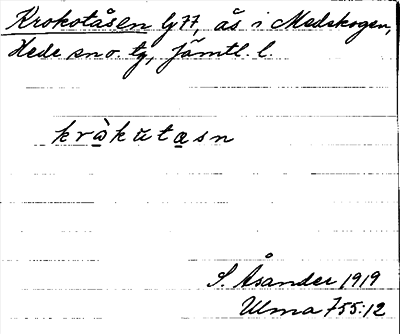 Krokotåsen Ly 77, ås i Medskogen,
Hede sn o. tg, Jämtl. l.
kràkŭtasn
S. Åsander 1919
Ulma 755:12